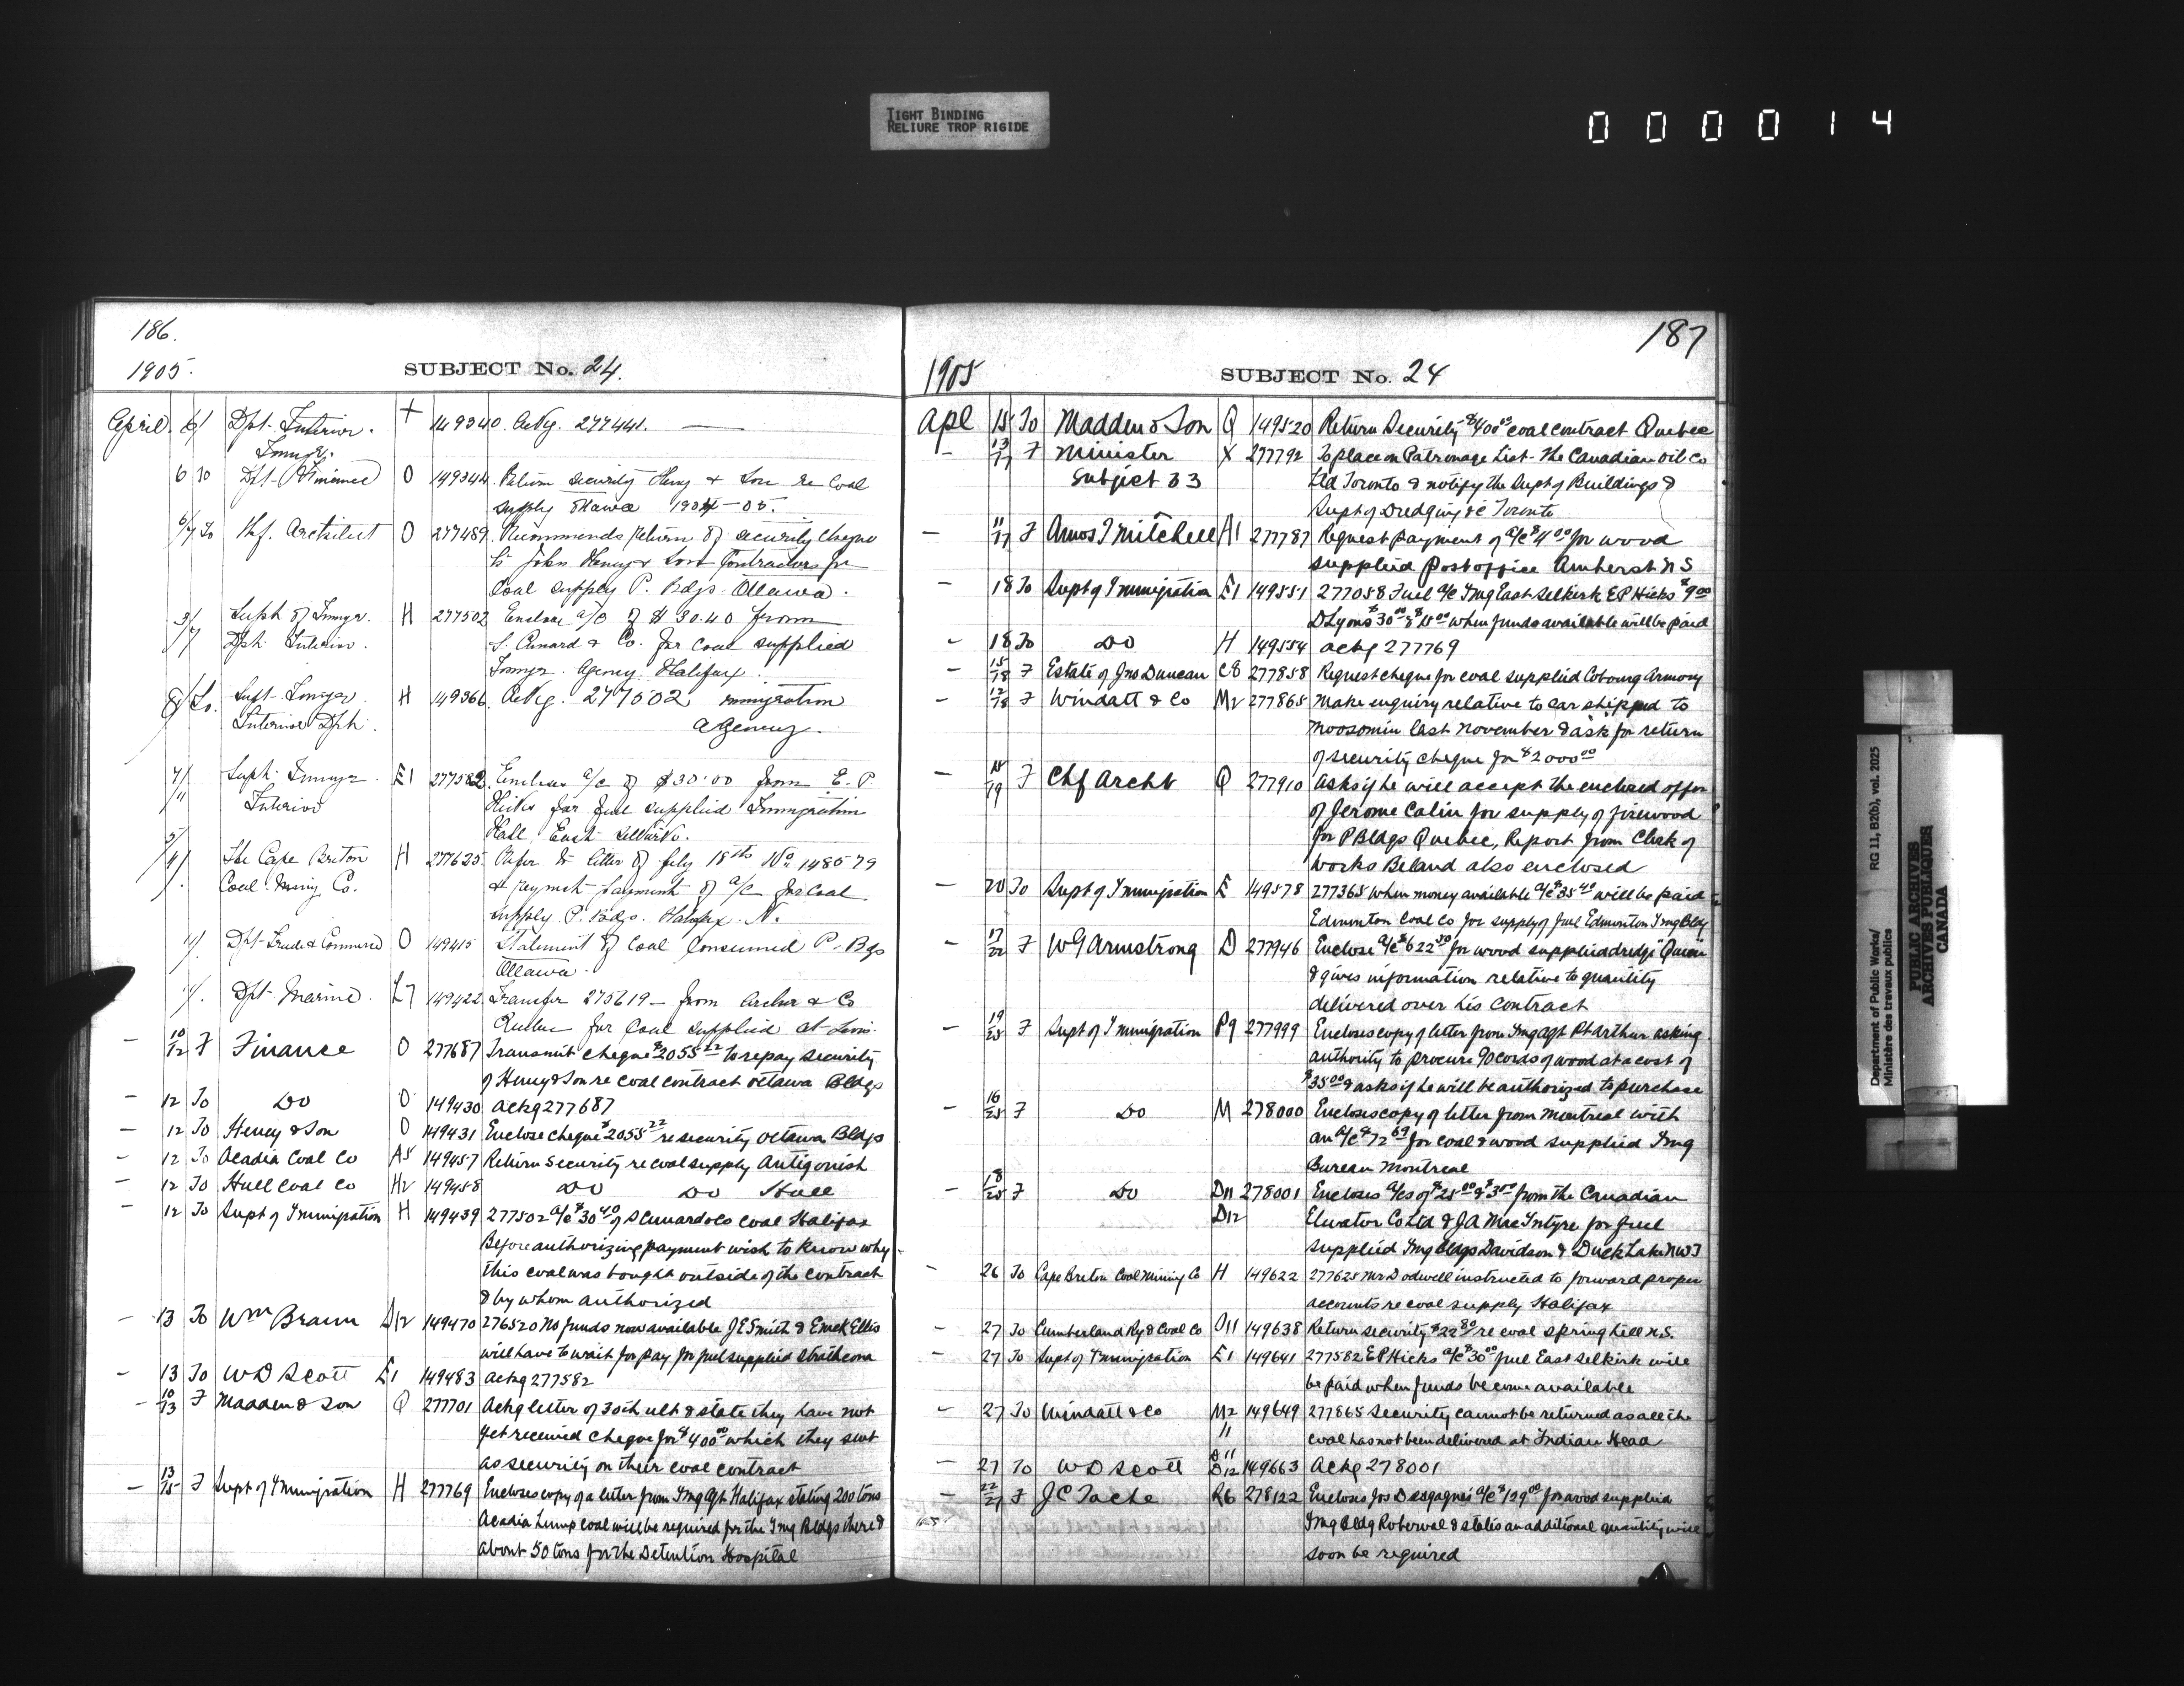 TIGHT BINDING
RELIURE TROP RIGIDE
000014
186.
1905.
SUBJECT No. 24.
April 6/ Dpt. Interior. + 149340. Ackg. 277441. —
Immgr.
6 To Dpt. Finance O 149344. Return security Henry & Son re Coal
supply Ottawa 1904-05.
6/7 To Chf. Architect O 277489. Recommends return of security cheque
to John Henry & Son Contractors for
Coal supply P. Bdgs Ottawa.
3/7 Supt of Immgr. H 277502 Enclose a/c of $30.40 from
Dpt. Interior. S. Cunard & Co. for coal supplied
Immgr. Agency Halifax.
8/ To. Supt. Immgr. H 149366. Ackg. 277502 immigration
Interior Dpt. Agency.
7/11 Supt. Immgr. E1 277582. Encloses a/c of $30.00 from E. P.
Interior Hicks for fuel supplied Immigration
Hall East Selkirk.
The Cape Breton H 277625. Refer to letter of July 18th No 148579
Coal Mining Co. & payment of a/c for Coal
supply P. Bdgs. Halifax. N.
Dpt. Trade & Commerce O 149415 Statement of Coal Consumed P. Bgs
Ottawa.
Dpt. Marine. L7 149422. Transfer 275619 — from Archer & Co
Quebec for Coal supplied at Levis.
— 10/12 F Finance O 277687 Transmit cheque $2055 22 to repay security
of Henry & Son re coal contract Ottawa Bldgs
— 12 To Do O 149430 Ackg 277687
— 12 To Henry & Son O 149431 Enclose cheque $2055 22 re security Ottawa Bldgs
— 12 To Acadia Coal Co A5 149457 Return Security re coal supply Antigonish
— 12 To Hull Coal Co H2 149458 Do Do Hull
— 12 To Supt of Immigration H 149439 277502 a/c $30 40 of S Cunard & Co Coal Halifax
Before authorizing payment wish to know why
this coal was bought outside of the contract
& by whom authorized
— 13 To Wm Braun D12 149470 276520 No funds now available J E Smith & Ellis
will have to wait for pay for fuel supplied Strathcona
— 13 To W D Scott E1 149483 Ackg 277582
— 10/13 F Madden & Son Q 277701 Ackg letter of 30th ult & state they have not
yet received cheque for $400 00 which they sent
as security on their coal contract
— 13/15 F Supt of Immigration H 277769 Encloses copy of a letter from Img Agt Halifax stating 200 tons
Acadia Lump coal will be required for the Img Bldgs there &
about 50 tons for the Detention Hospital
187
1905
SUBJECT No. 24
Apl 15 To Madden & Son Q 149520 Return Security $400 00 coal contract Quebec
— 13/17 F Minister X 277792 To place on Patronage List - The Canadian Oil Co
Subject 33 Ltd Toronto & notify the Supt of Buildings &
Supt of Dredging &c Toronto
— 11/17 F Amos T Mitchell A1 277787 Request payment of a/c $4 00 for wood
supplied Post office Amherst N S
— 18 To Supt of Immigration E1 149551 277058 Fuel a/c Img East Selkirk E P Hicks $9 00
D Lyons $30 00 & $15 00 when funds available will be paid
— 18 To Do H 149554 Ackg 277769
— 15/18 F Estate of Jno Duncan C8 277858 Request cheque for coal supplied Cobourg Armory
— 12/18 F Windatt & Co M2 277865 Make enquiry relative to car shipped to
Moosomin last November & ask for return
of security cheque for $2000 00
— 18/19 F Chf Archt Q 277910 Asks if he will accept the enclosed offer
of Jerome Calin for supply of firewood
for P Bldgs Quebec, Report from Clerk of
Works Beland also enclosed
— 20 To Supt of Immigration E 149578 277365 When money available a/c $35 40 will be paid
Edmonton Coal Co for supply of fuel Edmonton Img Bldg
— 17/22 F W G Armstrong D 277946 Enclose a/c $622 50 for wood supplied dredge "Queen"
& gives information relative to quantity
delivered over his contract
— 19/25 F Supt of Immigration P9 277999 Encloses copy of letter from Img Agt Pt Arthur asking
authority to procure 90 cords of wood at a cost of
$35 00 & asks if he will be authorized to purchase
— 16/25 F Do M 278000 Encloses copy of letter from Montreal with
an a/c $72 69 for coal & wood supplied Img
Bureau Montreal
— 18/25 F Do D11 278001 Encloses a/cs of $25 00 & $3 50 from the Canadian
D12 Elevator Co Ltd & J A MacIntyre for fuel
supplied Img Bldgs Davidson & Duck Lake NWT
— 26 To Cape Breton Coal Mining Co H 149622 277625 Mr Dodwell instructed to forward proper
accounts re coal supply Halifax
— 27 To Cumberland Ry & Coal Co O11 149638 Return Security $22 80 re coal Spring Hill N.S.
— 27 To Supt of Immigration E1 149641 277582 E P Hicks a/c $30 00 fuel East Selkirk will
be paid when funds become available
— 27 To Windatt & Co M2 149649 277865 Security cannot be returned as all the
11 coal has not been delivered at Indian Head
— 27 To W D Scott D11 D12 149663 Ackg 278001
— 22/27 F J C Tache R6 278122 Encloses Jos Desgagnes a/c $129 00 for wood supplied
Img Bldg Roberval & states an additional quantity will
soon be required
Department of Public Works/
Ministère des travaux publics
RG 11, B2(b), vol. 2025
PUBLIC ARCHIVES
ARCHIVES PUBLIQUES
CANADA